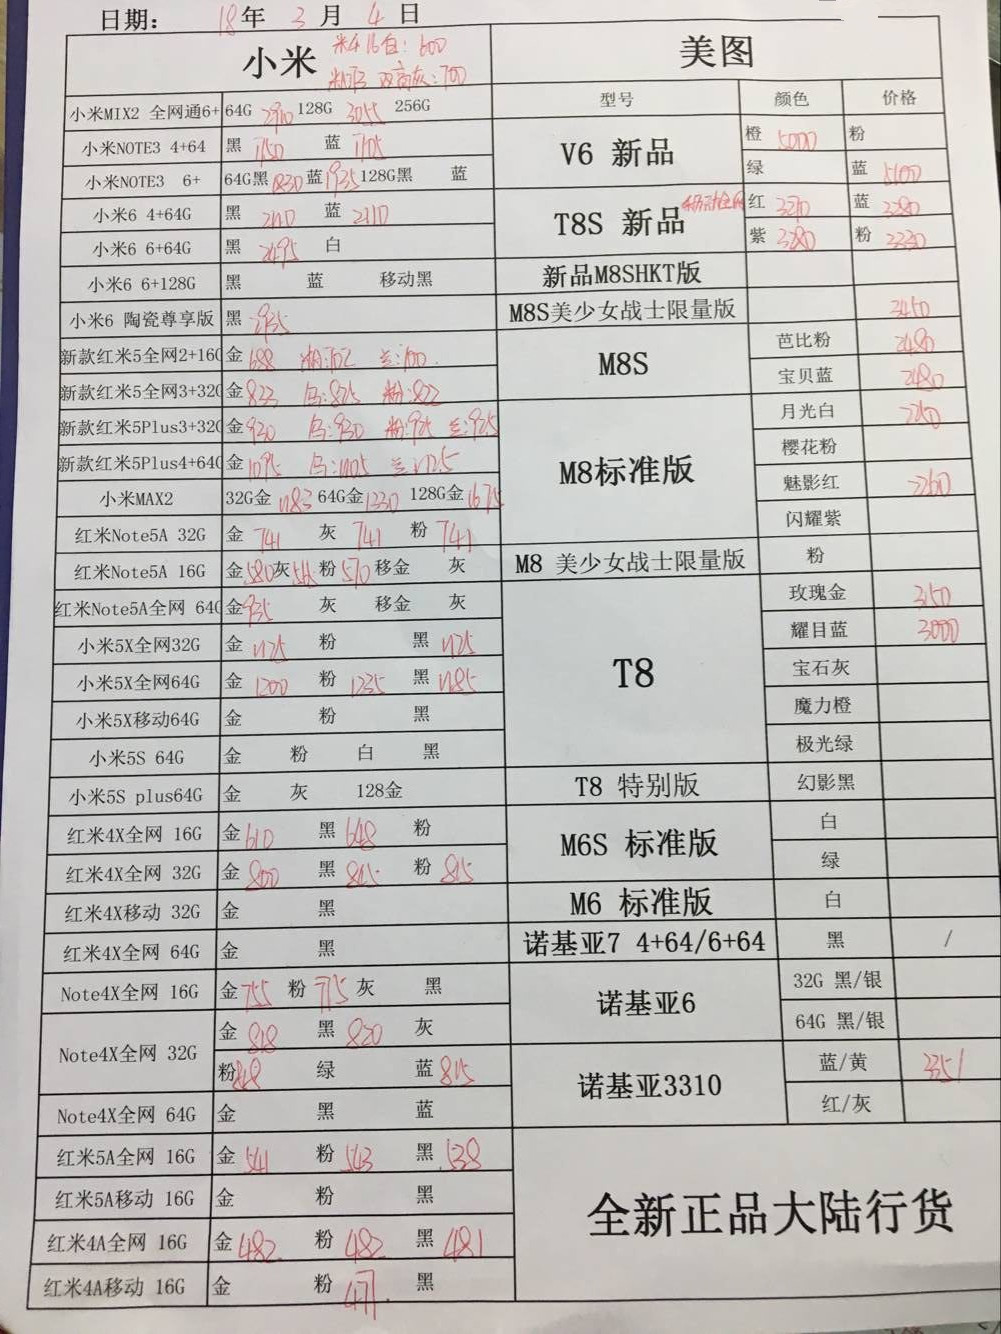 日期: 18年 3月 4日
小米 米4 16白: 600
双高灰: 700
小米MIX2 全网通6+ 64G 128G 3055 256G
小米NOTE3 4+64 黑 1750 蓝 1705
小米NOTE3 6+ 64G黑 1830 蓝 1935 128G黑 蓝
小米6 4+64G 黑 2110 蓝 2110
小米6 6+64G 黑 2495 白
小米6 6+128G 黑 蓝 移动黑
小米6 陶瓷尊享版 黑
新款红米5全网2+16G 金 688
新款红米5全网3+32G 金 833 乌:825 粉:822
新款红米5Plus3+32G 金 930 乌:930 粉:925 兰:925
新款红米5Plus4+64G 金 1095 乌:1105 兰:1125
小米MAX2 32G金 1183 64G金 1330 128G金 1675
红米Note5A 32G 金 741 灰 741 粉 741
红米Note5A 16G 金 580 灰 粉 570 移金 灰
红米Note5A全网 64G 金 935 灰 移金 灰
小米5X全网32G 金 1125 粉 黑 1125
小米5X全网64G 金 1200 粉 1235 黑 1185
小米5X移动64G 金 粉 黑
小米5S 64G 金 粉 白 黑
小米5S plus64G 金 灰 128金
红米4X全网 16G 金 610 黑 648 粉
红米4X全网 32G 金 800 黑 815 粉 815
红米4X移动 32G 金 黑
红米4X全网 64G 金 黑
Note4X全网 16G 金 755 粉 715 灰 黑
Note4X全网 32G 金 818 黑 820 灰
粉 818 绿 蓝 815
Note4X全网 64G 金 黑 蓝
红米5A全网 16G 金 541 粉 543 黑 538
红米5A移动 16G 金 粉 黑
红米4A全网 16G 金 482 粉 482 黑 481
红米4A移动 16G 金 粉 471 黑
美图
型号 颜色 价格
V6 新品 橙 5000 粉
绿 蓝 5100
T8S 新品 红 3270 蓝 3280
紫 3280 粉 3330
新品M8SHKT版
M8S美少女战士限量版 3450
M8S 芭比粉 2480
宝贝蓝 2480
M8标准版 月光白 2250
樱花粉
魅影红 2260
闪耀紫
M8 美少女战士限量版 粉
T8 玫瑰金 3150
耀目蓝 3000
宝石灰
魔力橙
极光绿
T8 特别版 幻影黑
M6S 标准版 白
绿
M6 标准版 白
诺基亚7 4+64/6+64 黑 /
诺基亚6 32G 黑/银
64G 黑/银
诺基亚3310 蓝/黄 335/
红/灰
全新正品大陆行货